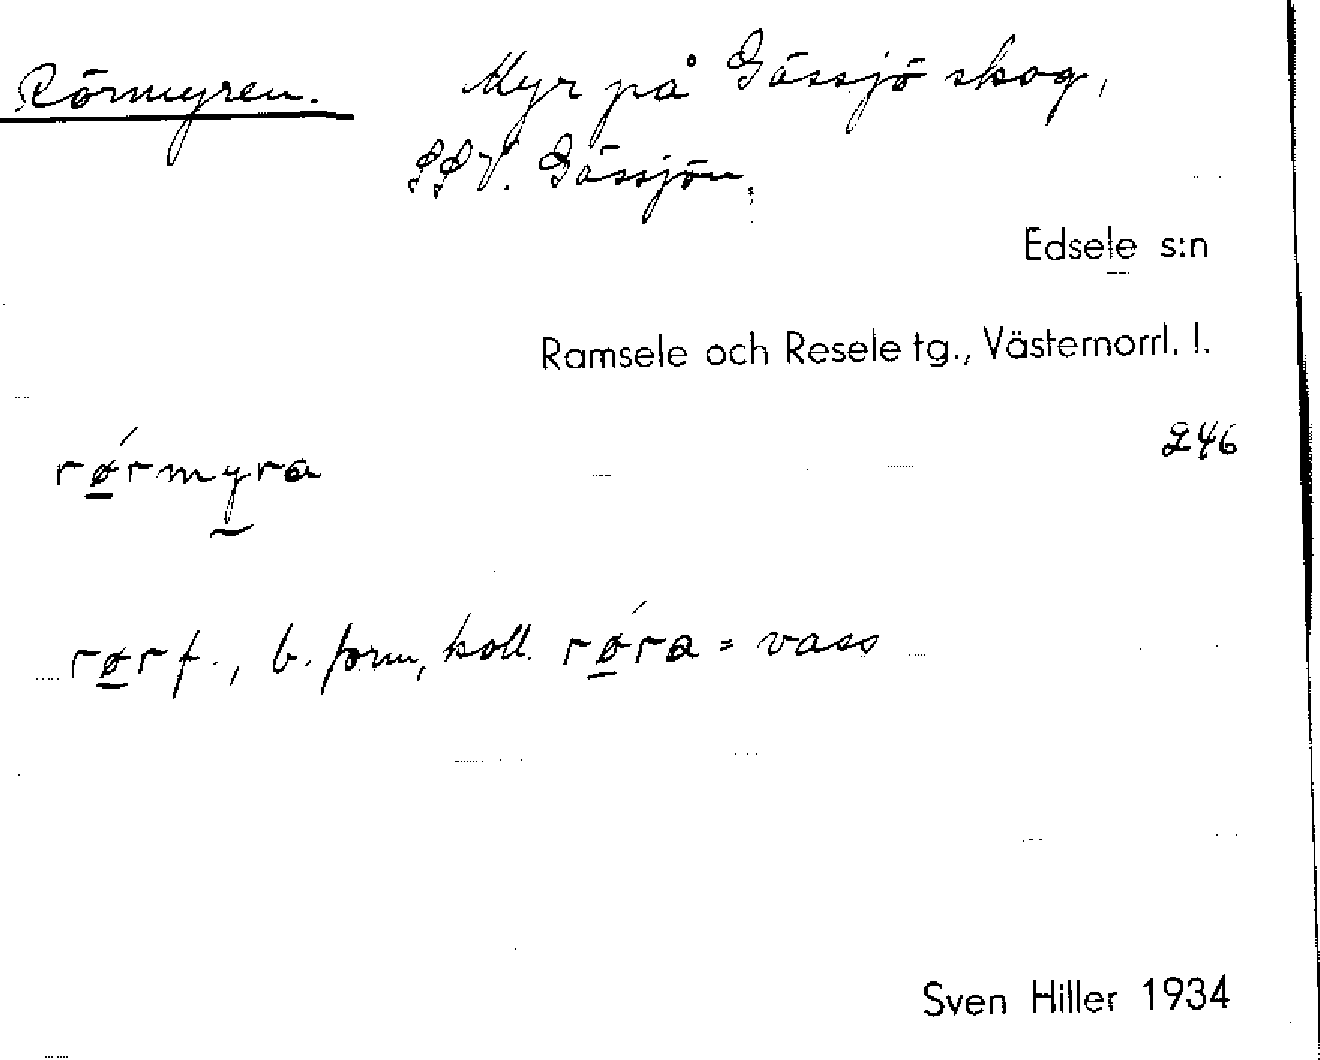 Rörmyren. Myr på Gåssjö skog,
SSV. Gåssjön.
Edsele s:n
Ramsele och Resele tg., Västernorrl. l.
246
rǿrmyra
rør f., b. form, koll. rǿra = vass
Sven Hiller 1934